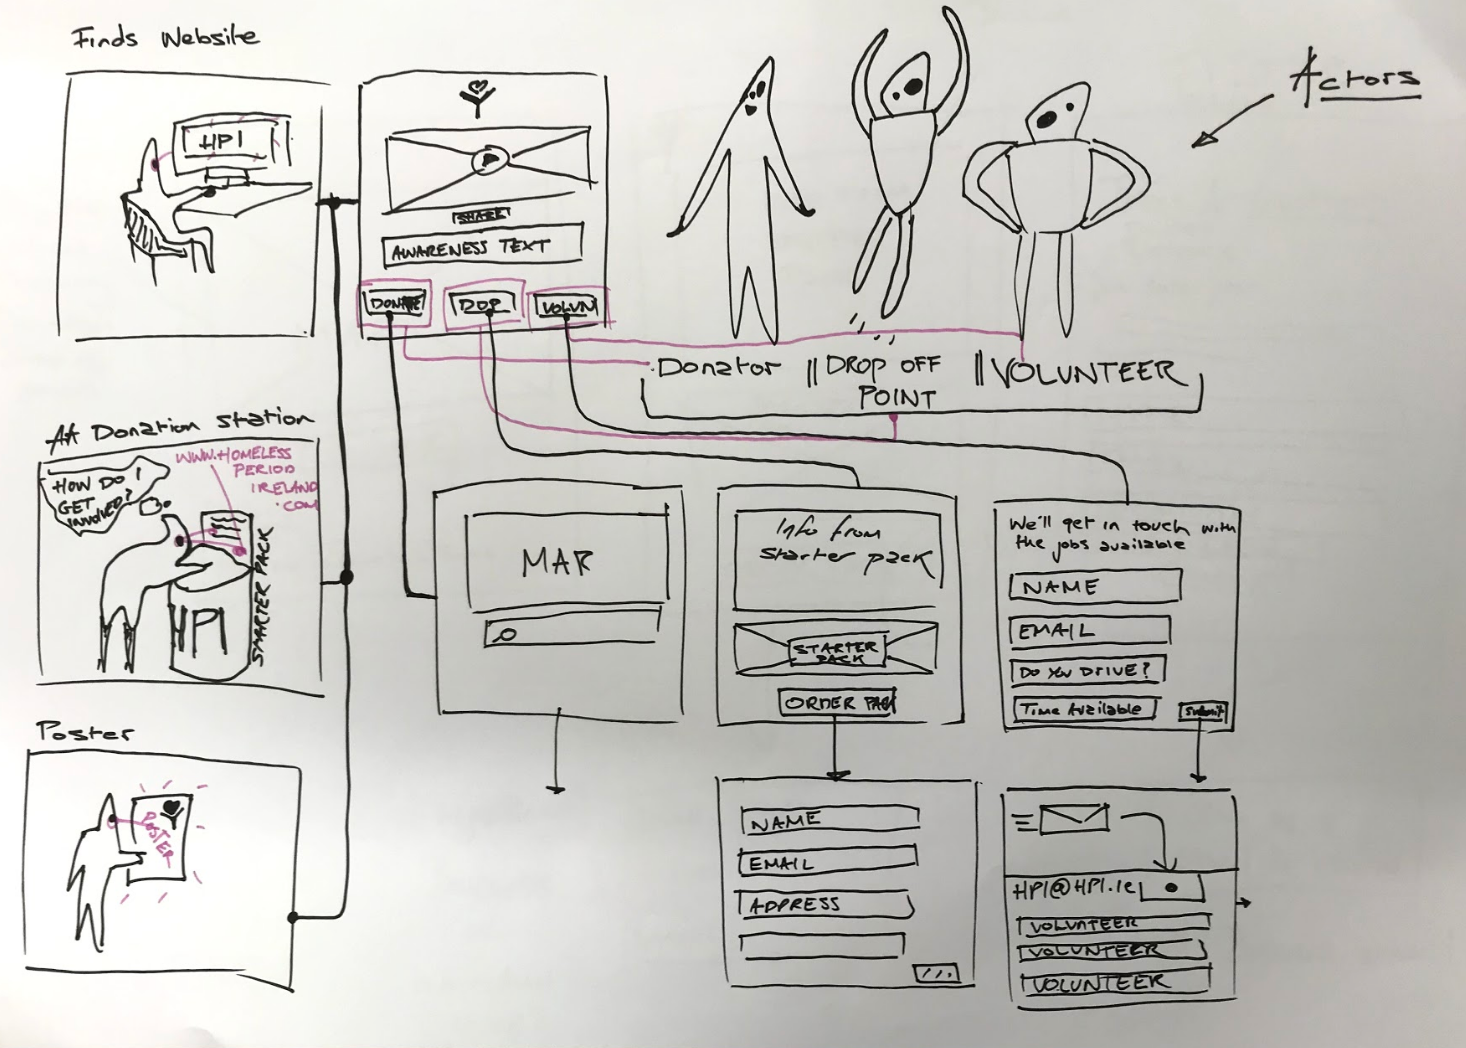 Finds Website
Actors
HPI
SHARE
AWARENESS TEXT
DONATE
DOP
VOLUN
Donator || DROP OFF || VOLUNTEER
POINT
At Donation Station
HOW DO I
GET
INVOLVED?
WWW.HOMELESS
PERIOD
IRELAND
.COM
HPI
STARTER PACK
MAP
Info from
Starter pack
STARTER
PACK
ORDER PACK
We'll get in touch with
the jobs available
NAME
EMAIL
DO YOU DRIVE?
Time Available
Submit
Poster
POSTER
NAME
EMAIL
ADDRESS
HPI@HPI.ie
VOLUNTEER
VOLUNTEER
VOLUNTEER